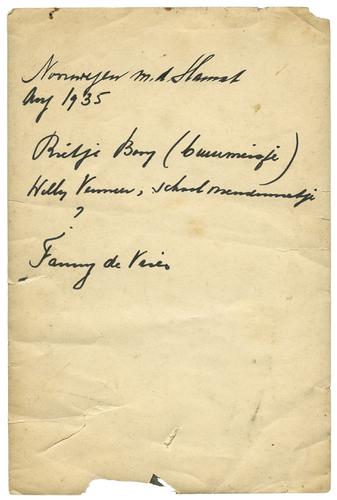 Noorwegen m.d Slamat
Aug 1935
Rietje Bony (buurmeisje)
Willy Vermeer, schoolvriendinnetje
?
Fanny de Vries